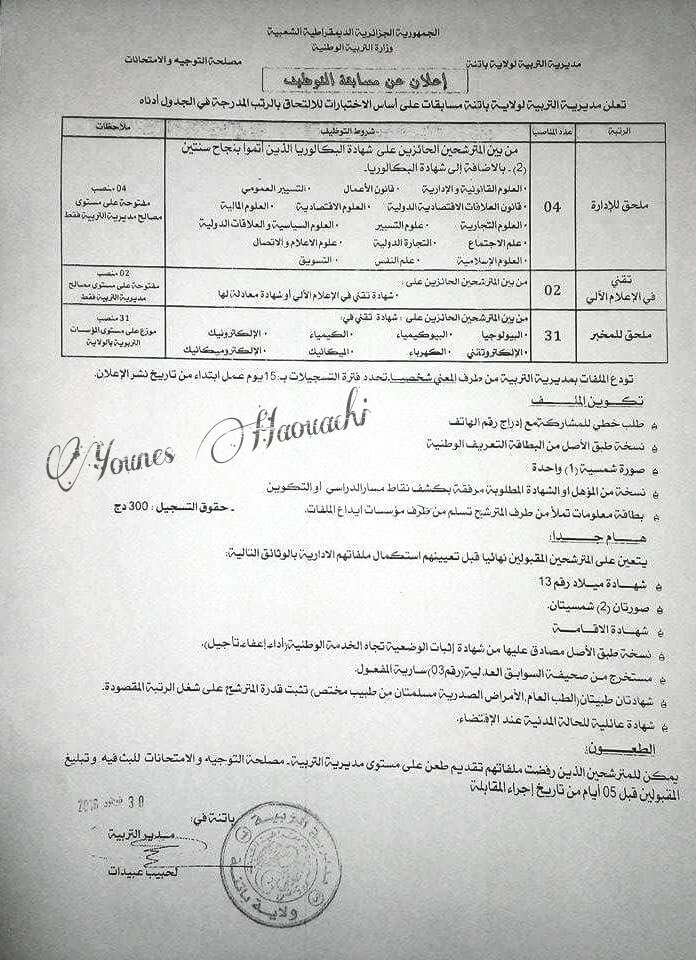 الجمهورية الجزائرية الديمقراطية الشعبية
وزارة التربية الوطنية
مديرية التربية لولاية باتنة
مصلحة التوجيه والامتحانات
إعلان عن مسابقة التوظيف
تعلن مديرية التربية لولاية باتنة مسابقات على أساس الاختبارات للالتحاق بالرتب المدرجة في الجدول أدناه
الرتبة عدد المناصب شروط التوظيف ملاحظات
ملحق للإدارة
04
من بين المترشحين الحائزين على شهادة البكالوريا الذين أتموا بنجاح سنتين
(2)- بالاضافة إلى شهادة البكالوريا.
• العلوم القانونية و الإدارية • قانون الأعمال • التسيير العمومي
• قانون العلاقات الاقتصادية الدولية • العلوم الاقتصادية • العلوم المالية
• العلوم التجارية • علوم التسيير • العلوم السياسية و العلاقات الدولية
• علم الاجتماع • التجارة الدولية • علوم الاعلام و الاتصال
• العلوم الإسلامية • علم النفس • التسويق
04 منصب
مفتوحة على مستوى
مصالح مديرية التربية فقط
تقني
في الإعلام الآلي
02
من بين المترشحين الحائزين على :
• شهادة تقني في الإعلام الآلي أو شهادة معادلة لها
02 منصب
مفتوحة على مستوى مصالح
مديرية التربية فقط
ملحق للمخبر
31
من بين المترشحين الحائزين على : شهادة تقني في:
• البيولوجيا • البيوكيمياء • الكيمياء • الإلكترونيك
• الإلكتروتقني • الكهرباء • الميكانيك • الإلكتروميكانيك
31 منصب
موزع على مستوى المؤسسات
التربوية بالولاية
تودع الملفات بمديرية التربية من طرف المعني شخصيا، تحدد فترة التسجيلات بـ:15 يوم عمل ابتداء من تاريخ نشر الإعلان.
تكوين الملف
طلب خطي للمشاركة مع إدراج رقم الهاتف
نسخة طبق الأصل من البطاقة التعريف الوطنية
صورة شمسية (1) واحدة
نسخة من المؤهل او الشهادة المطلوبة مرفقة بكشف نقاط مسار الدراسي او التكوين
بطاقة معلومات تملأ من طرف المترشح تسلم من طرف مؤسسات ايداع الملفات. ـ حقوق التسجيل : 300 دج
Younes Haouachi
هـام جـدا:
يتعين على المترشحين المقبولين نهائيا قبل تعيينهم استكمال ملفاتهم الادارية بالوثائق التالية:
شهادة ميلاد رقم 13
صورتان (2) شمسيتان.
شهادة الاقامة
نسخة طبق الأصل مصادق عليها من شهادة إثبات الوضعية تجاه الخدمة الوطنية (أداء إعفاء تأجيل).
مستخرج من صحيفة السوابق العدلية (رقم03) سارية المفعول.
شهادتان طبيتان (الطب العام، الأمراض الصدرية مسلمتان من طبيب مختص) تثبت قدرة المترشح على شغل الرتبة المقصودة.
شهادة عائلية للحالة المدنية عند الإقتضاء.
الطعون:
يمكن للمترشحين الذين رفضت ملفاتهم تقديم طعن على مستوى مديرية التربية ـ مصلحة التوجيه و الامتحانات للبث فيه و تبليغ
المقبولين قبل 05 أيام من تاريخ إجراء المقابلة
باتنة في :
مدير التربية
لحبيب عبيدات
مديرية التربية
ولاية باتنة